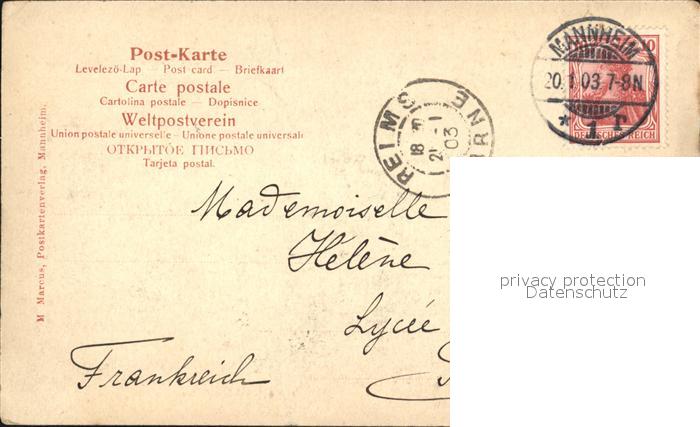 Post-Karte
Levelező-Lap — Post card — Briefkaart
Carte postale
Cartolina postale — Dopisnice
Weltpostverein
Union postale universelle - Unione postale universale
ОТКРЫТОЕ ПИСЬМО
Tarjeta postal.
M Marcus, Postkartenverlag, Mannheim.
REIMS
18
21 - 1
03
MANNHEIM
20.1.03.7-8N.
* 1
10
DEUTSCHES REICH
Mademoiselle
Helène
Lycée
Frankreich
privacy protection
Datenschutz